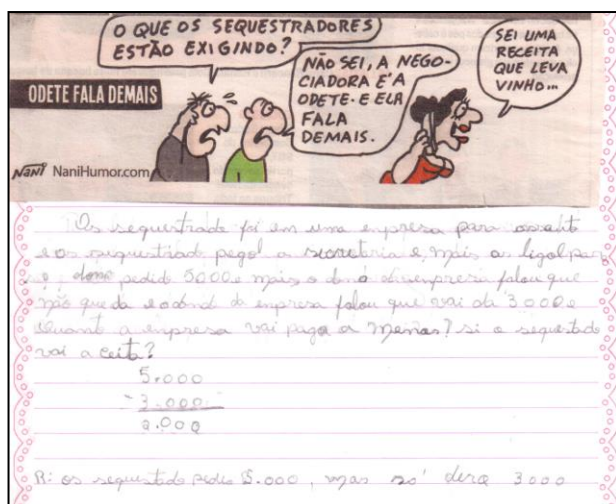 O QUE OS SEQUESTRADORES
ESTÃO EXIGINDO?
NÃO SEI, A NEGO-
CIADORA E'A
ODETE. E ELA
FALA
DEMAIS.
SEI UMA
RECEITA
QUE LEVA
VINHO...
ODETE FALA DEMAIS
Nani NaniHumor.com
Os sequestrado foi em uma enpresa para assalt
e os siquistrad pegol a secretaria e, mais as ligol para
dono pedid 5000 e mais o dono da enpresa falou que
não que da e o dono da enpresa falou que vai da 3000 e
Quant a enpresa vai paga a menas? si o sequestado
vai a ceita?
5.000
- 3.000
2.000
R: os sequestado pedio 5.000, mas só dera 3000